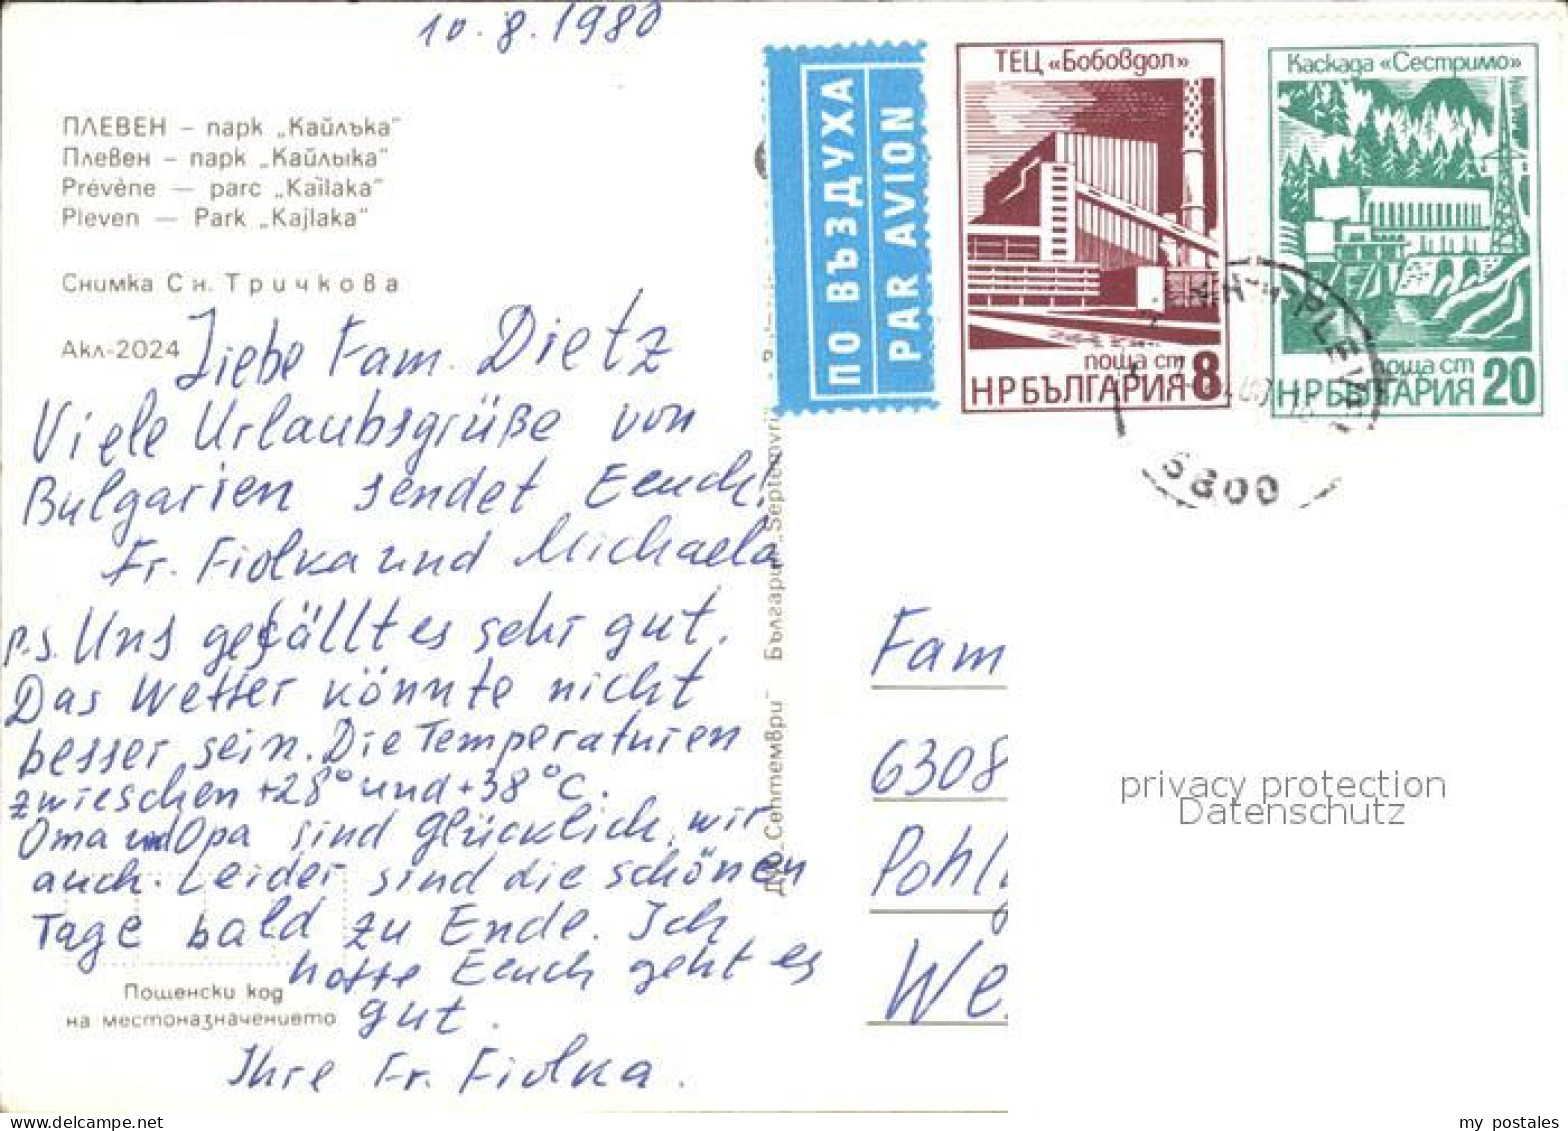 10.8.1980
ПЛЕВЕН – парк „Кайлъка"
Плевен – парк „Кайлыка"
Prévène — parc „Kaïlaka"
Pleven — Park „Kajlaka"
Снимка Сн. Тричкова
Акл-2024
Liebe Fam. Dietz
Viele Urlaubsgrüße von
Bulgarien sendet Eeuch!
Fr. Fiolka und Michaela
P.S. Uns gefällt es sehr gut.
Das Wetter könnte nicht
besser sein. Die Temperaturen
zwieschen +28° und +38°C.
Oma und Opa sind glücklich, wir
auch. Leider sind die schönen
Tage bald zu Ende. Ich
hoffe Eeuch geht es
gut.
Ihre Fr. Fiolka.
Пощенски код
на местоназначението
България „Septemvri
ДПО „Септември"
ПО ВЪЗДУХА
PAR AVION
ТЕЦ «Бобовдол»
поща ст 8
НРБЪЛГАРИЯ
Каскада «Сестримо»
поща ст
НРБЪЛГАРИЯ 20
5800
Fam
6308
Pohl
We
privacy protection
Datenschutz
my postales